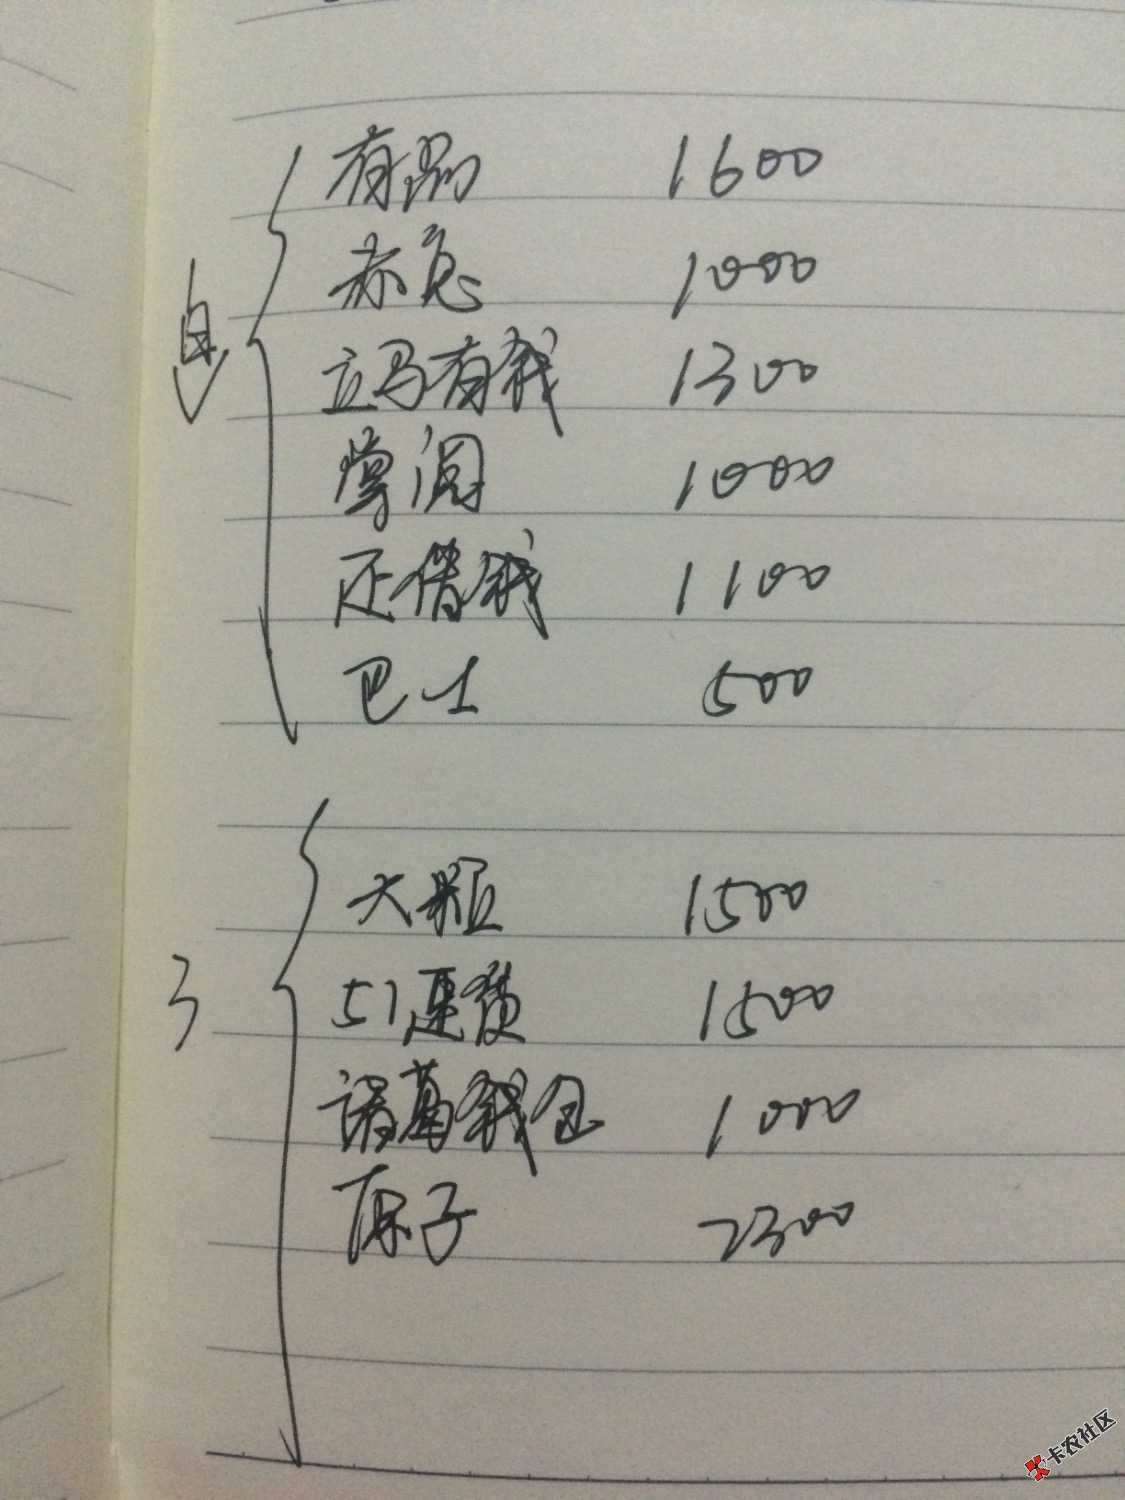 有品 1600
赤兔 1000
立马有钱 1300
1000
还借钱 1100
巴士 500
大 1500
51速贷 1500
诸葛钱包 1000
原子 2300
卡农社区